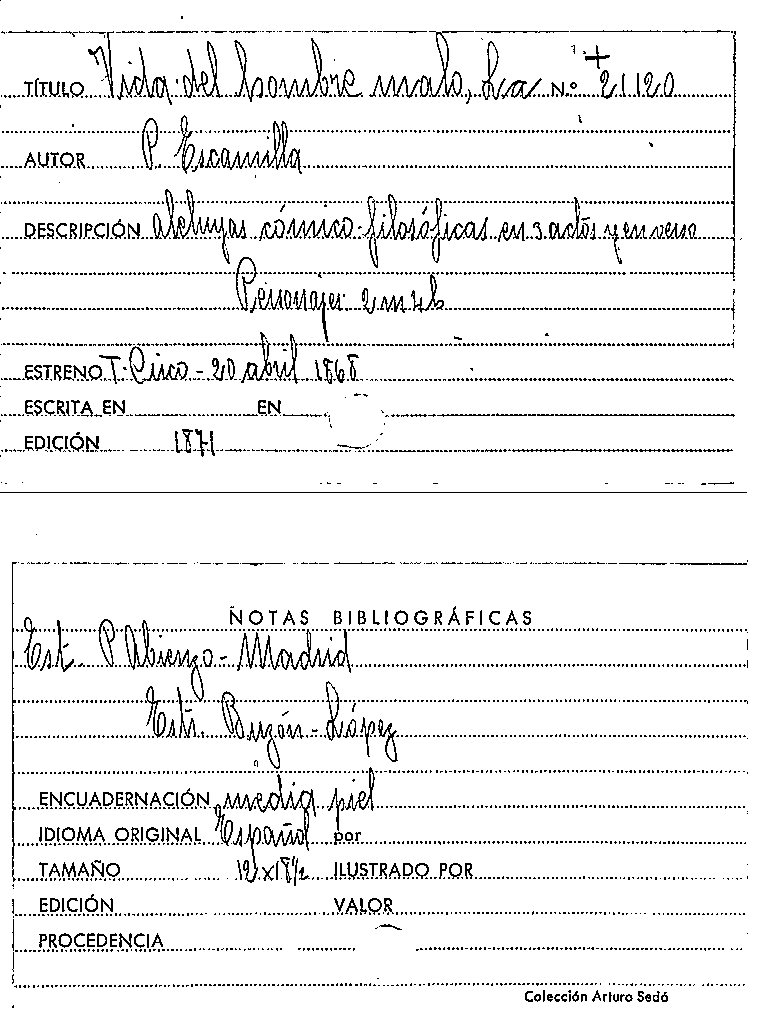 TÍTULO Vida del hombre malo, La N.º 21120
AUTOR P. Escamilla
DESCRIPCIÓN aleluyas cómico-filosóficas en 3 actos y en verso
Personajes: 2 m 4 h
ESTRENO T. Circo - 20 abril 1868
ESCRITA EN EN
EDICIÓN 1871
NOTAS BIBLIOGRÁFICAS
Est. P. Abienzo - Madrid
Estr. Buzón - López
ENCUADERNACIÓN media piel
IDIOMA ORIGINAL Español por
TAMAÑO 12 x 18 1/2 ILUSTRADO POR
EDICIÓN VALOR
PROCEDENCIA
Colección Arturo Sedó